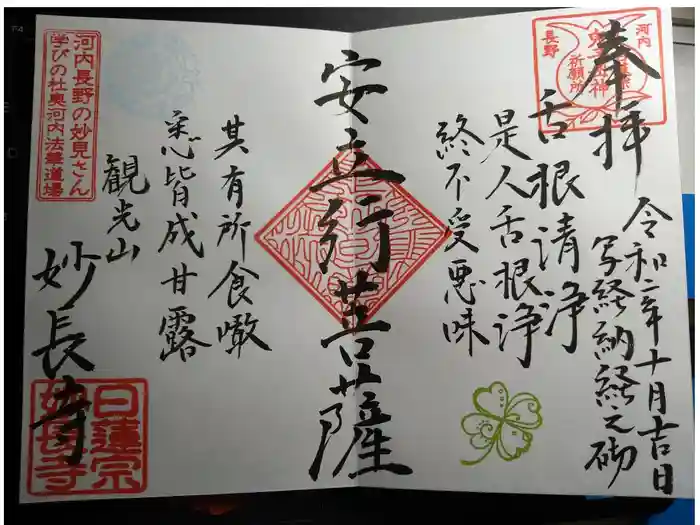 奉拝
令和二年十月吉日
写経納経之砌
舌根清浄
是人舌根浄
終不受悪味
安立行菩薩
其有所食噉
悉皆成甘露
観光山
妙長寺
河内
長野
祈願所
河内長野の妙見さん
学びの杜奥河内法華道場
日蓮宗
妙長寺